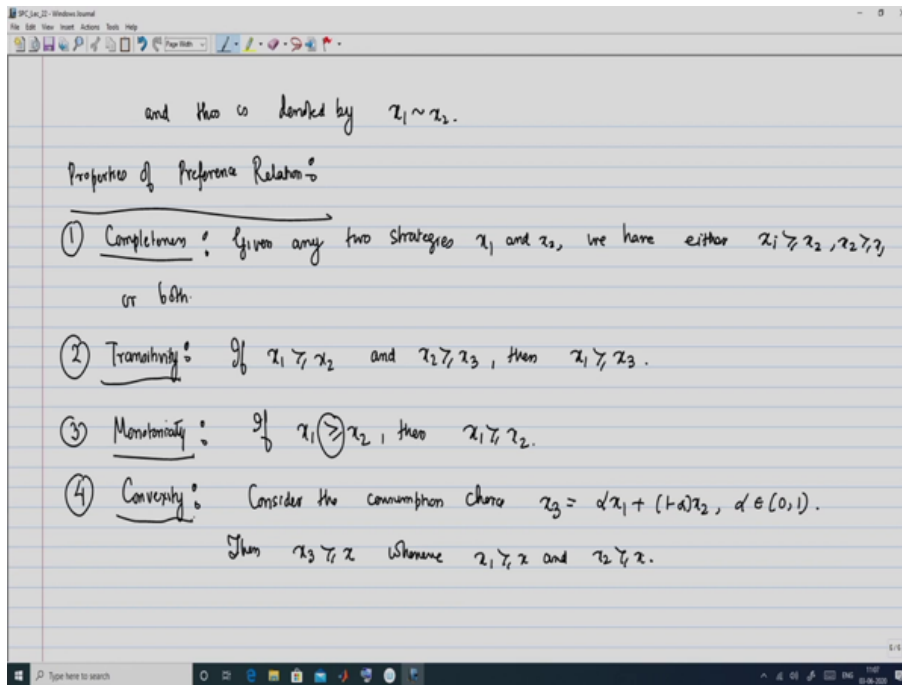 SPC_Lec_22 - Windows Journal
File Edit View Insert Actions Tools Help
Page Width
and this is denoted by x₁ ~ x₂.
Properties of Preference Relation:
① Completeness : Given any two strategies x₁ and x₂, we have either x₁ ≽ x₂ , x₂ ≽ x₁
or both.
② Transitivity : If x₁ ≽ x₂ and x₂ ≽ x₃ , then x₁ ≽ x₃ .
③ Monotonicity : If x₁ ≥ x₂ , then x₁ ≽ x₂.
④ Convexity : Consider the consumption choice x₃ = αx₁ + (1-α)x₂ , α ∈ (0,1) .
Then x₃ ≽ x whenever x₁ ≽ x and x₂ ≽ x.
Type here to search
ENG
11:07
03-06-2020